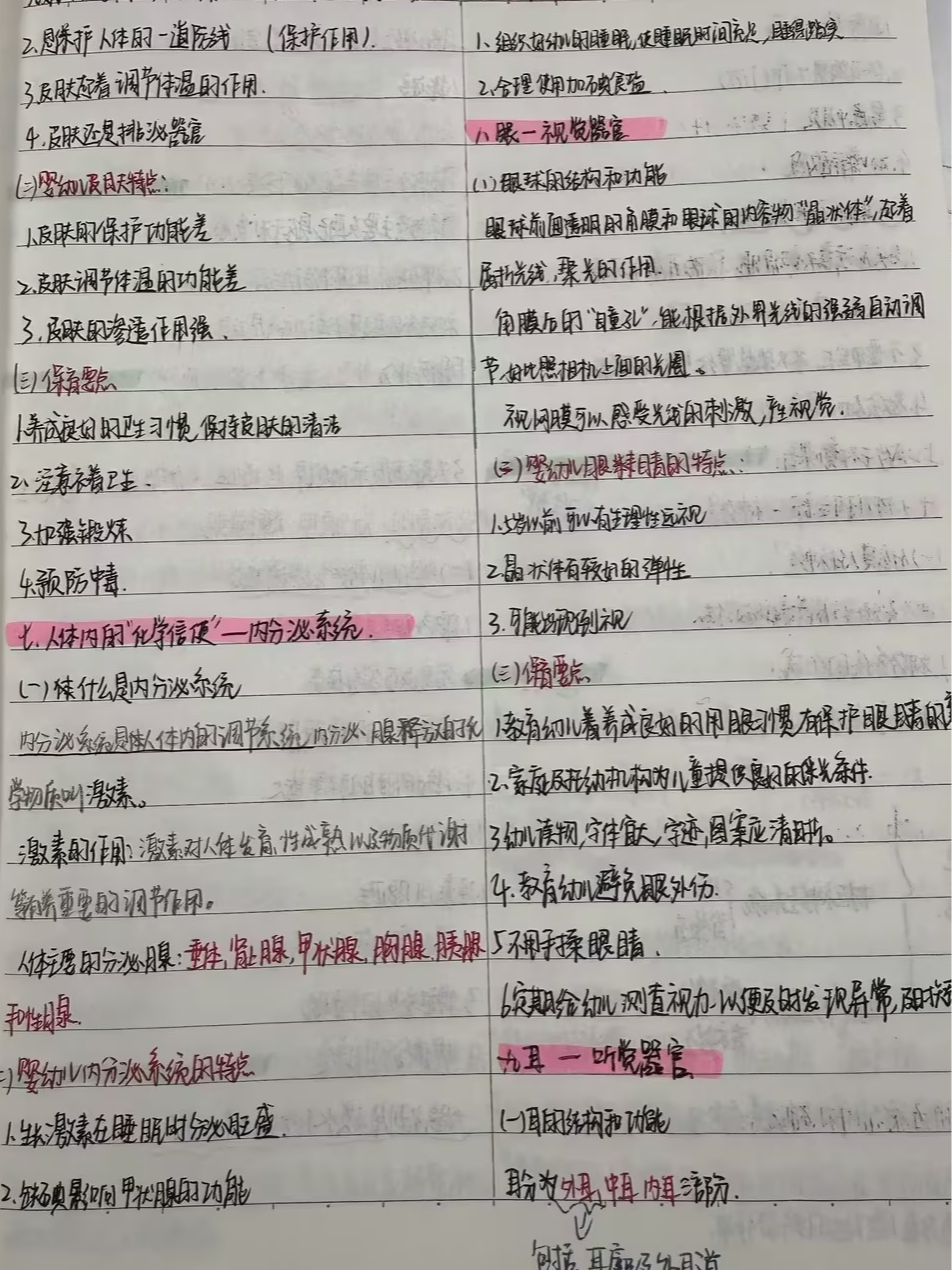 2.是保护人体的一道防线 (保护作用).
3.皮肤起着调节体温的作用.
4.皮肤还是排泌器官
(二)婴幼儿皮肤特点:
1.皮肤的保护功能差
2.皮肤调节体温的功能差
3.皮肤的渗透作用强.
(三)保育要点
1.养成良好的卫生习惯,保持皮肤的清洁
2.注意衣着卫生.
3.加强锻炼
4.预防中毒.
七.人体内的"化学信使"—内分泌系统.
(一)什么是内分泌系统
内分泌系统是人体内的调节系统,内分泌腺释放的化
学物质叫激素。
激素的作用:激素对人体发育,性成熟以及物质代谢
等有着重要的调节作用。
人体主要的分泌腺:垂体,肾上腺,甲状腺,胸腺,胰腺
和性腺.
二)婴幼儿内分泌系统的特点
1.生长激素在睡眠时分泌旺盛.
2.缺碘影响甲状腺的功能
1.组织好幼儿的睡眠,使睡眠时间充足,睡得踏实
2.合理使用加碘食盐.
八.眼—视觉器官
(1)眼球的结构和功能
眼球前面透明的角膜和眼球的内容物"晶状体",起着
屈折光线,聚光的作用.
角膜后的"瞳孔",能根据外界光线的强弱自动调
节,好比照相机上面的光圈。
视网膜可以感受光线的刺激,产生视觉.
(二)婴幼儿眼睛的特点.
1.5岁以前可以有生理性远视
2.晶状体有较好的弹性
3.可能出现倒视
(三)保育要点
1.教育幼儿养成良好的用眼习惯,有保护眼睛的
2.家庭及托幼机构为儿童提供良好的采光条件.
3幼儿读物,字体宜大,字迹,图案应清晰。
4.教育幼儿避免眼外伤.
5不用手揉眼睛.
6定期给幼儿测查视力.以便及时发现异常,及时
九耳 — 听觉器官
(一)耳的结构和功能
耳分为外耳,中耳,内耳三部分.
包括 耳廓及外耳道